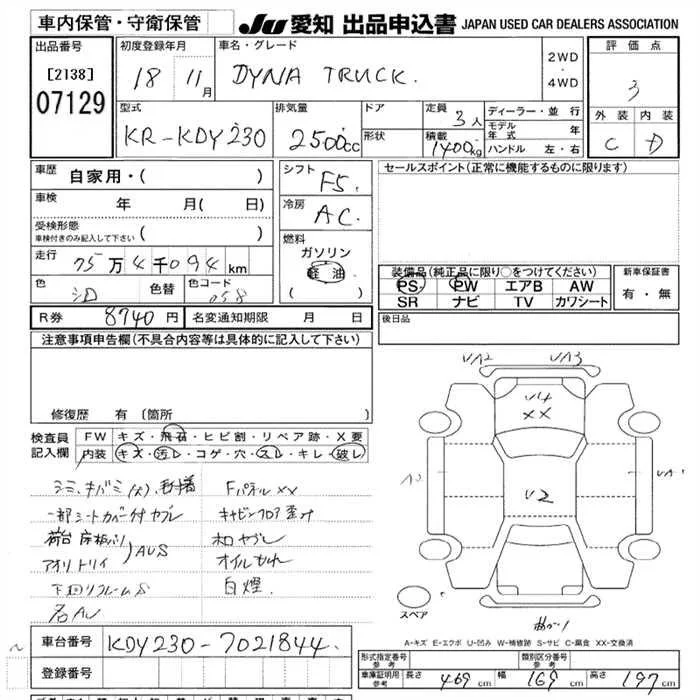 車内保管・守衛保管
JU 愛知 出品申込書 JAPAN USED CAR DEALERS ASSOCIATION
出品番号
[2138]
07129
初度登録年月
18 11月
車名・グレード
DYNA TRUCK.
2WD
・
4WD
評価点
3
型式
KR-KDY230
排気量
2500cc
ドア
形状
定員 3人
積載 1400kg
ディーラー・並 行
モデル年式 年
ハンドル 左・右
外装 内装
C D
車歴
自家用・( )
車検 年 月( 日)
受検形態
車検付きのみ記入して下さい ( )
走行 75万4千094km
色 シロ
色替
色コード 058
シフト F5
冷房 AC
燃料
ガソリン
軽油
( )
セールスポイント(正常に機能するものに限ります)
装備品(純正品に限り○をつけてください)
PS PW エアB AW
SR ナビ TV カワシート
新車保証書
有・無
R券 8740円
名変通知期限 月 日
後日品
注意事項申告欄(不具合内容等は具体的に記入して下さい)
修復歴 有 〔箇所
検査員
記入欄
FW キズ・飛石・ヒビ割・リペア跡・X要
内装 キズ・汚レ・コゲ・穴・スレ・キレ・破レ
一部シートカバー付ヤブレ
FパネルXX
キャビンフロア歪み
AUS
オイルもれ
白煙
VA2 VA3
U4
XX
U2
スペア
曲がり
A-キズ E-エクボ U-凹み W-補修跡 S-サビ C-腐食 XX-交換済
車台番号 KDY230-7021844
登録番号
形式指定番号
参考
類別区分番号
参考
車庫証明用
参考
長さ 469cm 幅 169cm 高さ 197cm